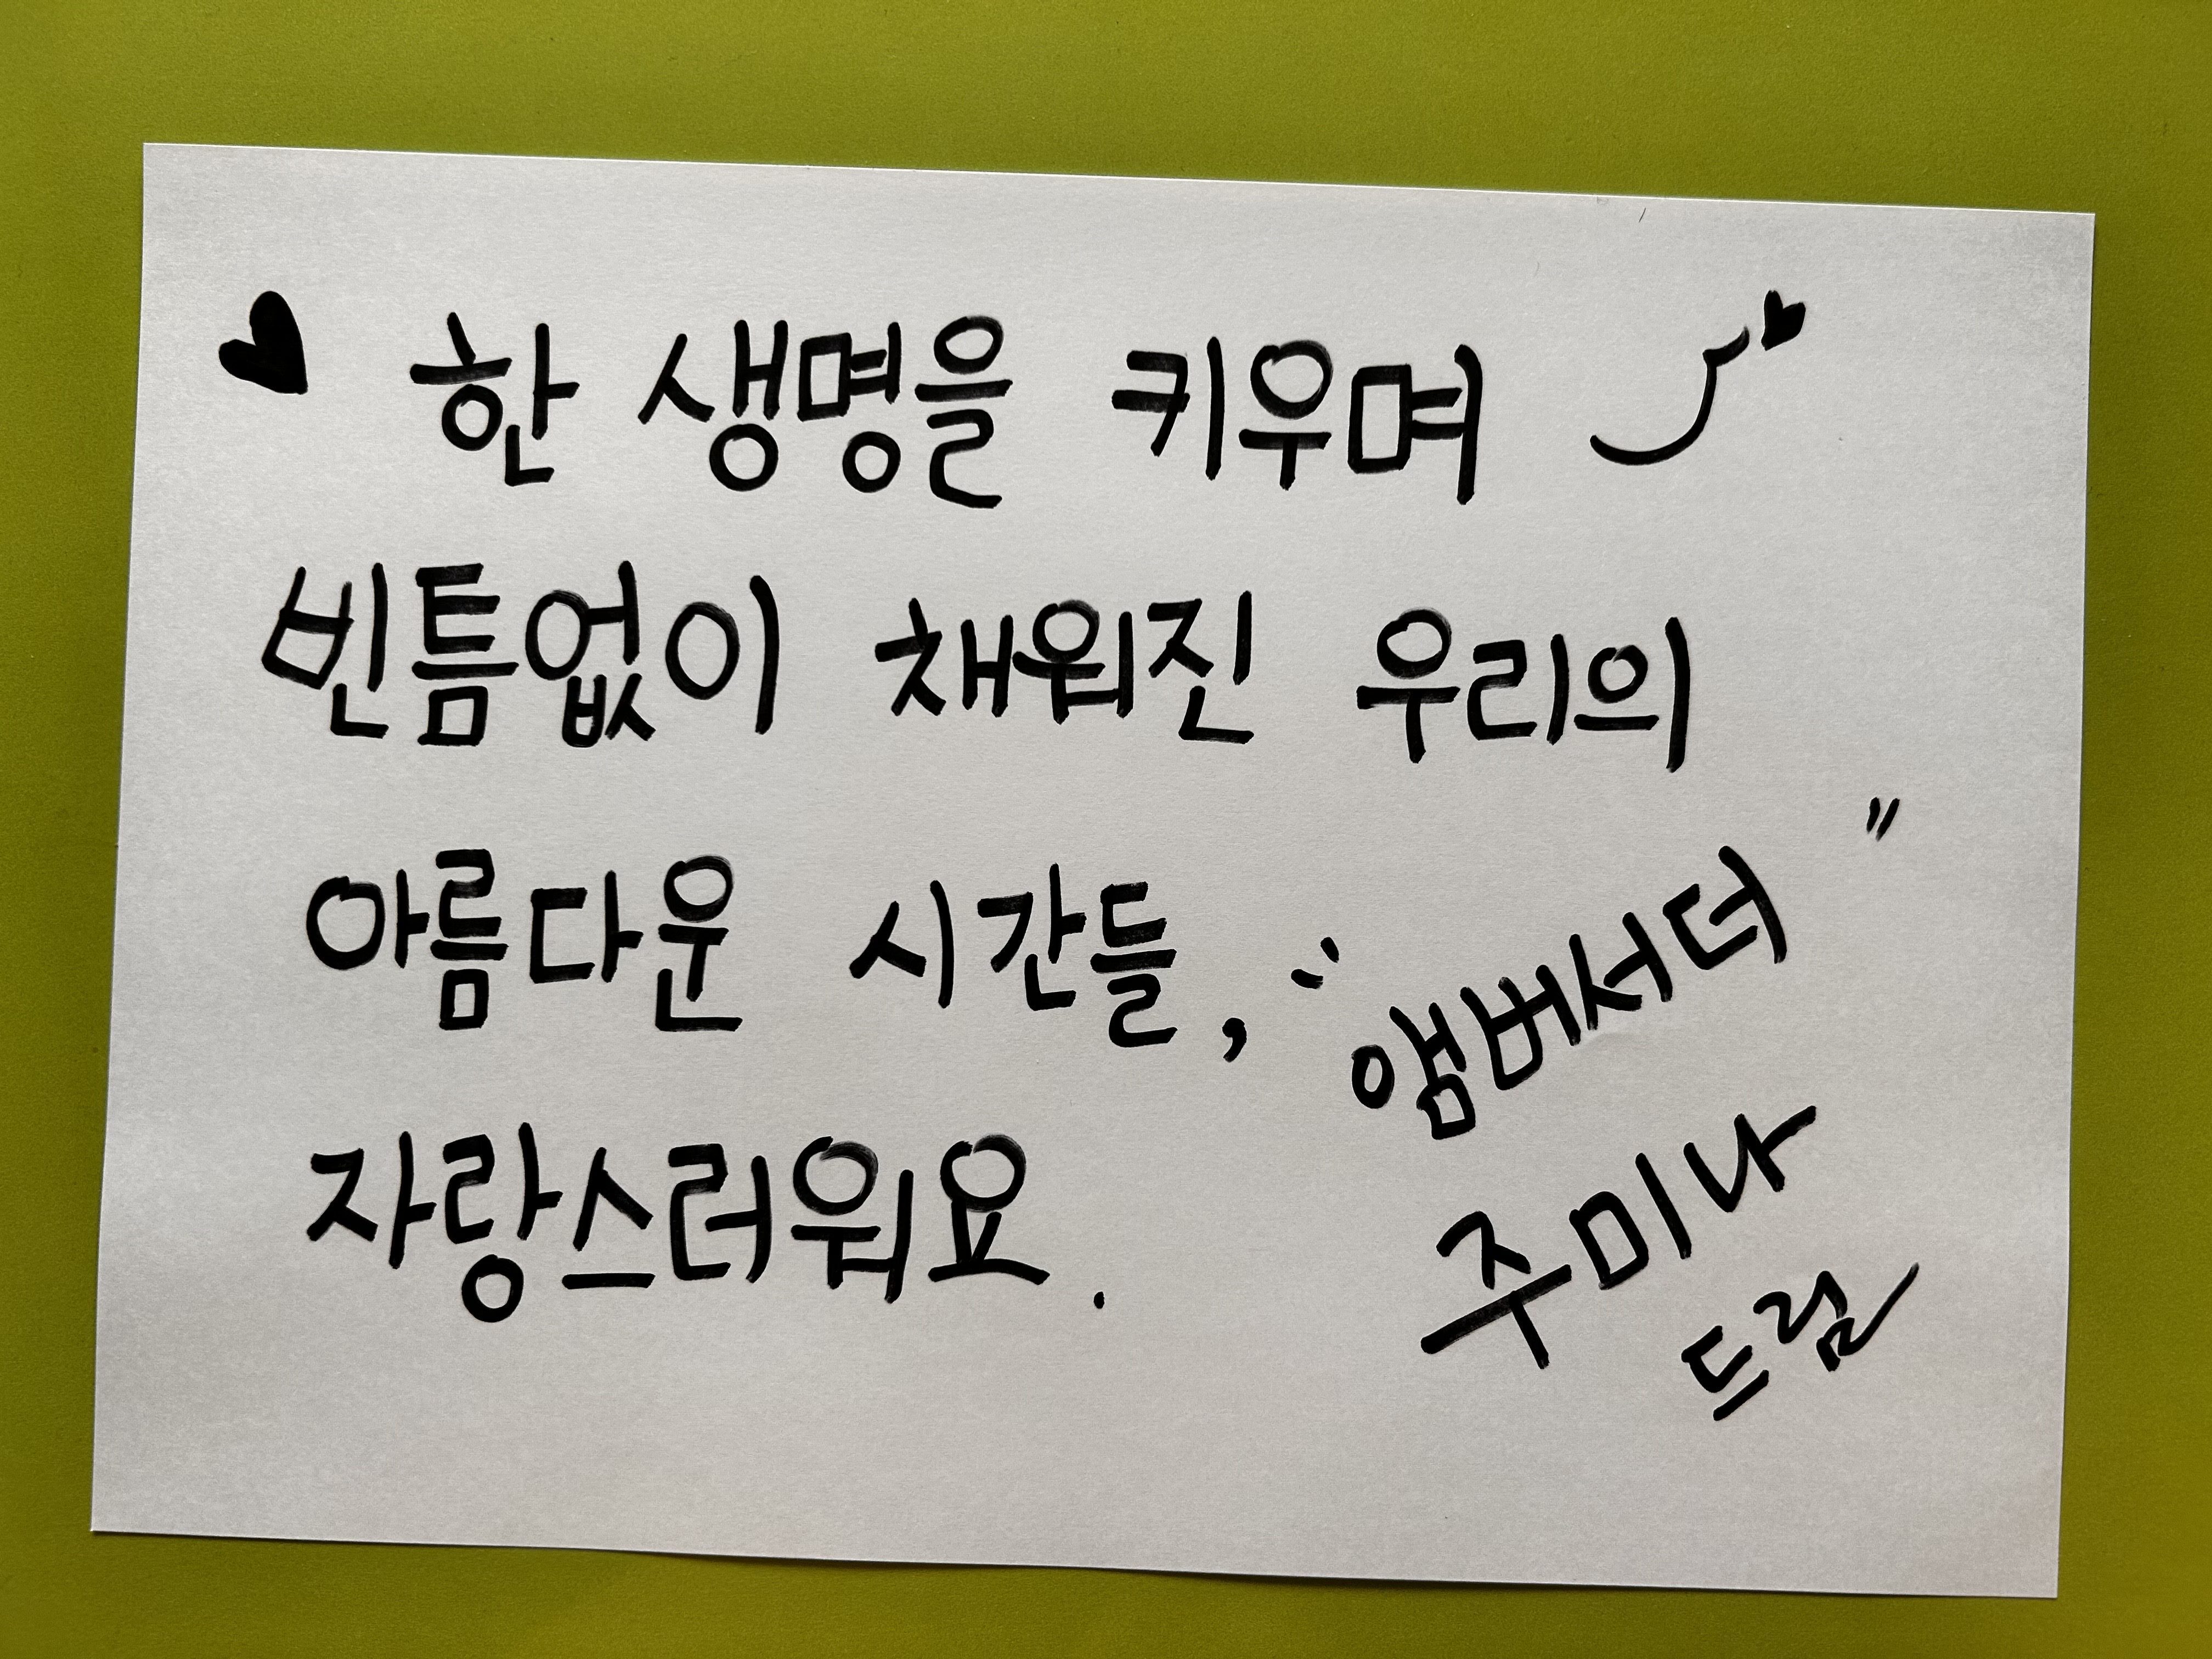 한 생명을 키우며
빈틈없이 채워진 우리의
아름다운 시간들,
자랑스러워요.
"앰버서더"
주미나
드림